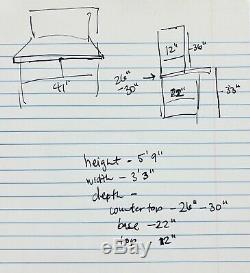 12"
36"
41"
26"
-30"
22"
33"
height - 5' 9"
width - 3' 3"
depth -
counter top - 26" - 30"
base - 22"
top 12"